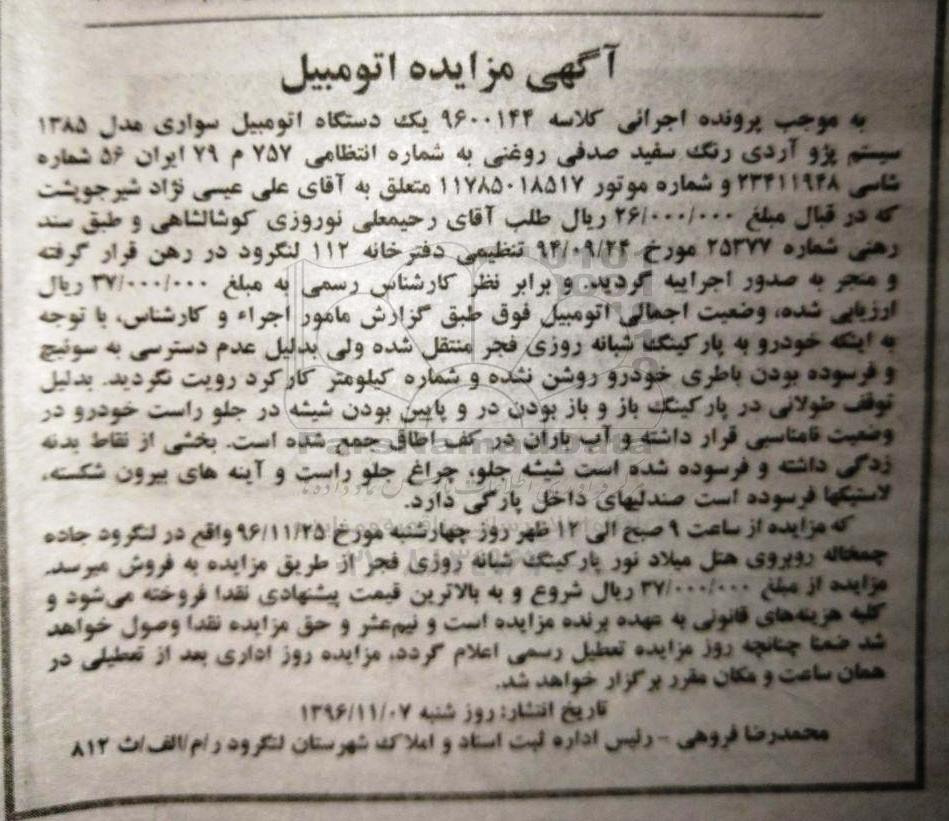 آگهی مزایده اتومبیل
به موجب پرونده اجرائی کلاسه ۹۶۰۰۱۴۴ یک دستگاه اتومبیل سواری مدل ۱۳۸۵
سیستم پژو آردی رنگ سفید صدفی روغنی به شماره انتظامی ۷۵۷ م ۷۹ ایران ۵۶ شماره
شاسی ۲۳۴۱۱۹۴۸ و شماره موتور ۱۱۷۸۵۰۱۸۵۱۷ متعلق به آقای علی عیسی نژاد شیرجوپشت
که در قبال مبلغ ۲۶/۰۰۰/۰۰۰ ریال طلب آقای رحیمعلی نوروزی کوشالشاهی و طبق سند
رهنی شماره ۲۵۳۷۷ مورخ ۹۴/۰۹/۲۴ تنظیمی دفترخانه ۱۱۲ لنگرود در رهن قرار گرفته
و منجر به صدور اجراییه گردید. و برابر نظر کارشناس رسمی به مبلغ ۳۷/۰۰۰/۰۰۰ ریال
ارزیابی شده، وضعیت اجمالی اتومبیل فوق طبق گزارش مامور اجراء و کارشناس، با توجه
به اینکه خودرو به پارکینگ شبانه روزی فجر منتقل شده ولی بدلیل عدم دسترسی به سوئیچ
و فرسوده بودن باطری خودرو روشن نشده و شماره کیلومتر کارکرد رویت نگردید. بدلیل
توقف طولانی در پارکینگ باز و باز بودن در و پایین بودن شیشه در جلو راست خودرو در
وضعیت نامناسبی قرار داشته و آب باران در کف اطاق جمع شده است. بخشی از نقاط بدنه
زدگی داشته و فرسوده شده است شیشه جلو، چراغ جلو راست و آینه های بیرون شکسته،
لاستیکها فرسوده است صندلیهای داخل پارگی دارد.
که مزایده از ساعت ۹ صبح الی ۱۲ ظهر روز چهارشنبه مورخ ۹۶/۱۱/۲۵ واقع در لنگرود جاده
چمخاله روبروی هتل میلاد نور پارکینگ شبانه روزی فجر از طریق مزایده به فروش میرسد.
مزایده از مبلغ ۳۷/۰۰۰/۰۰۰ ریال شروع و به بالاترین قیمت پیشنهادی نقدا فروخته می‌شود و
کلیه هزینه‌های قانونی به عهده برنده مزایده است و نیم‌عشر و حق مزایده نقدا وصول خواهد
شد ضمنا چنانچه روز مزایده تعطیل رسمی اعلام گردد، مزایده روز اداری بعد از تعطیلی در
همان ساعت و مکان مقرر برگزار خواهد شد.
تاریخ انتشار: روز شنبه ۱۳۹۶/۱۱/۰۷
محمدرضا فروهی - رئیس اداره ثبت اسناد و املاک شهرستان لنگرود ر/م/الف/ث ۸۱۲
ParsNamadData